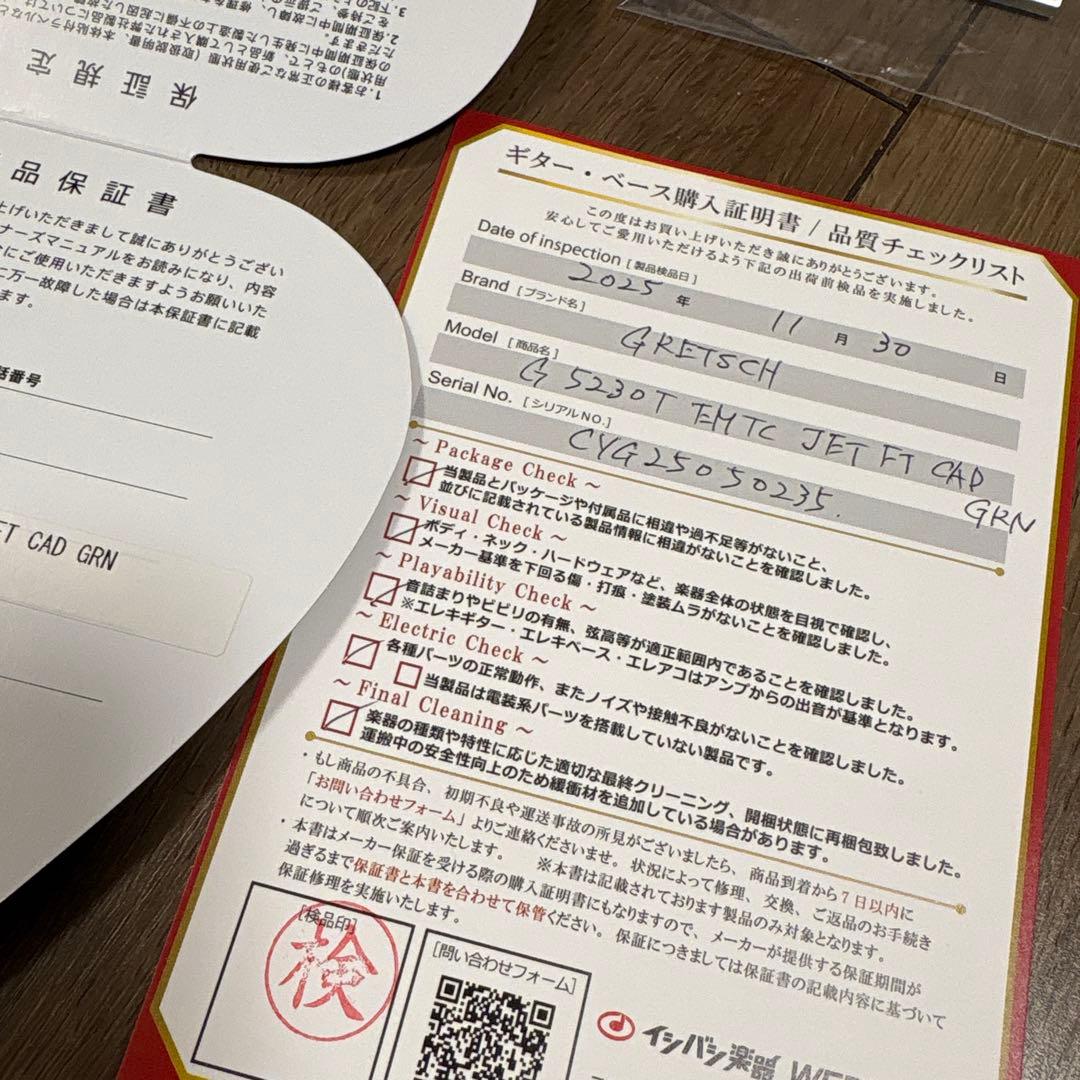 保証規定
1.お客様の正常なご使用状態 (取扱説明書、本体貼付ラベルなど
2.保証期間中に
3.下記の
品保証書
上げいただきまして誠にありがとうござい
ナーズマニュアルをお読みになり、内容
にご使用いただきますようお願いいた
万一故障した場合は本保証書に記載
ます。
話番号
FT CAD GRN
ギター・ベース購入証明書 / 品質チェックリスト
この度はお買い上げいただき誠にありがとうございます。
安心してご愛用いただけるよう下記の出荷前検品を実施しました。
Date of inspection [製品検品日] 2025 年 11 月 30 日
Brand [ブランド名] GRETSCH
Model [商品名] G5230T EMTC JET FT CAD GRN
Serial No. [シリアルNO.] CYG25050235.
~ Package Check ~
当製品とパッケージや付属品に相違や過不足等がないこと、
並びに記載されている製品情報に相違がないことを確認しました。
~ Visual Check ~
ボディ・ネック・ハードウェアなど、楽器全体の状態を目視で確認し、
メーカー基準を下回る傷・打痕・塗装ムラがないことを確認しました。
~ Playability Check ~
音詰まりやビビリの有無、弦高等が適正範囲内であることを確認しました。
※エレキギター・エレキベース・エレアコはアンプからの出音が基準となります。
~ Electric Check ~
各種パーツの正常動作、またノイズや接触不良がないことを確認しました。
当製品は電装系パーツを搭載していない製品です。
~ Final Cleaning ~
楽器の種類や特性に応じた適切な最終クリーニング、開梱状態に再梱包致しました。
運搬中の安全性向上のため緩衝材を追加している場合があります。
・もし商品の不具合、初期不良や運送事故の所見がございましたら、商品到着から7日以内に
「お問い合わせフォーム」よりご連絡くださいませ。状況によって修理、交換、ご返品のお手続き
について順次ご案内いたします。 ※本書は記載されております製品のみ対象となります。
・本書はメーカー保証を受ける際の購入証明書にもなりますので、メーカーが提供する保証期間が
過ぎるまで保証書と本書を合わせて保管ください。保証につきましては保証書の記載内容に基づいて
保証修理を実施いたします。
[検品印]
検
[問い合わせフォーム]
イシバシ楽器 WEB